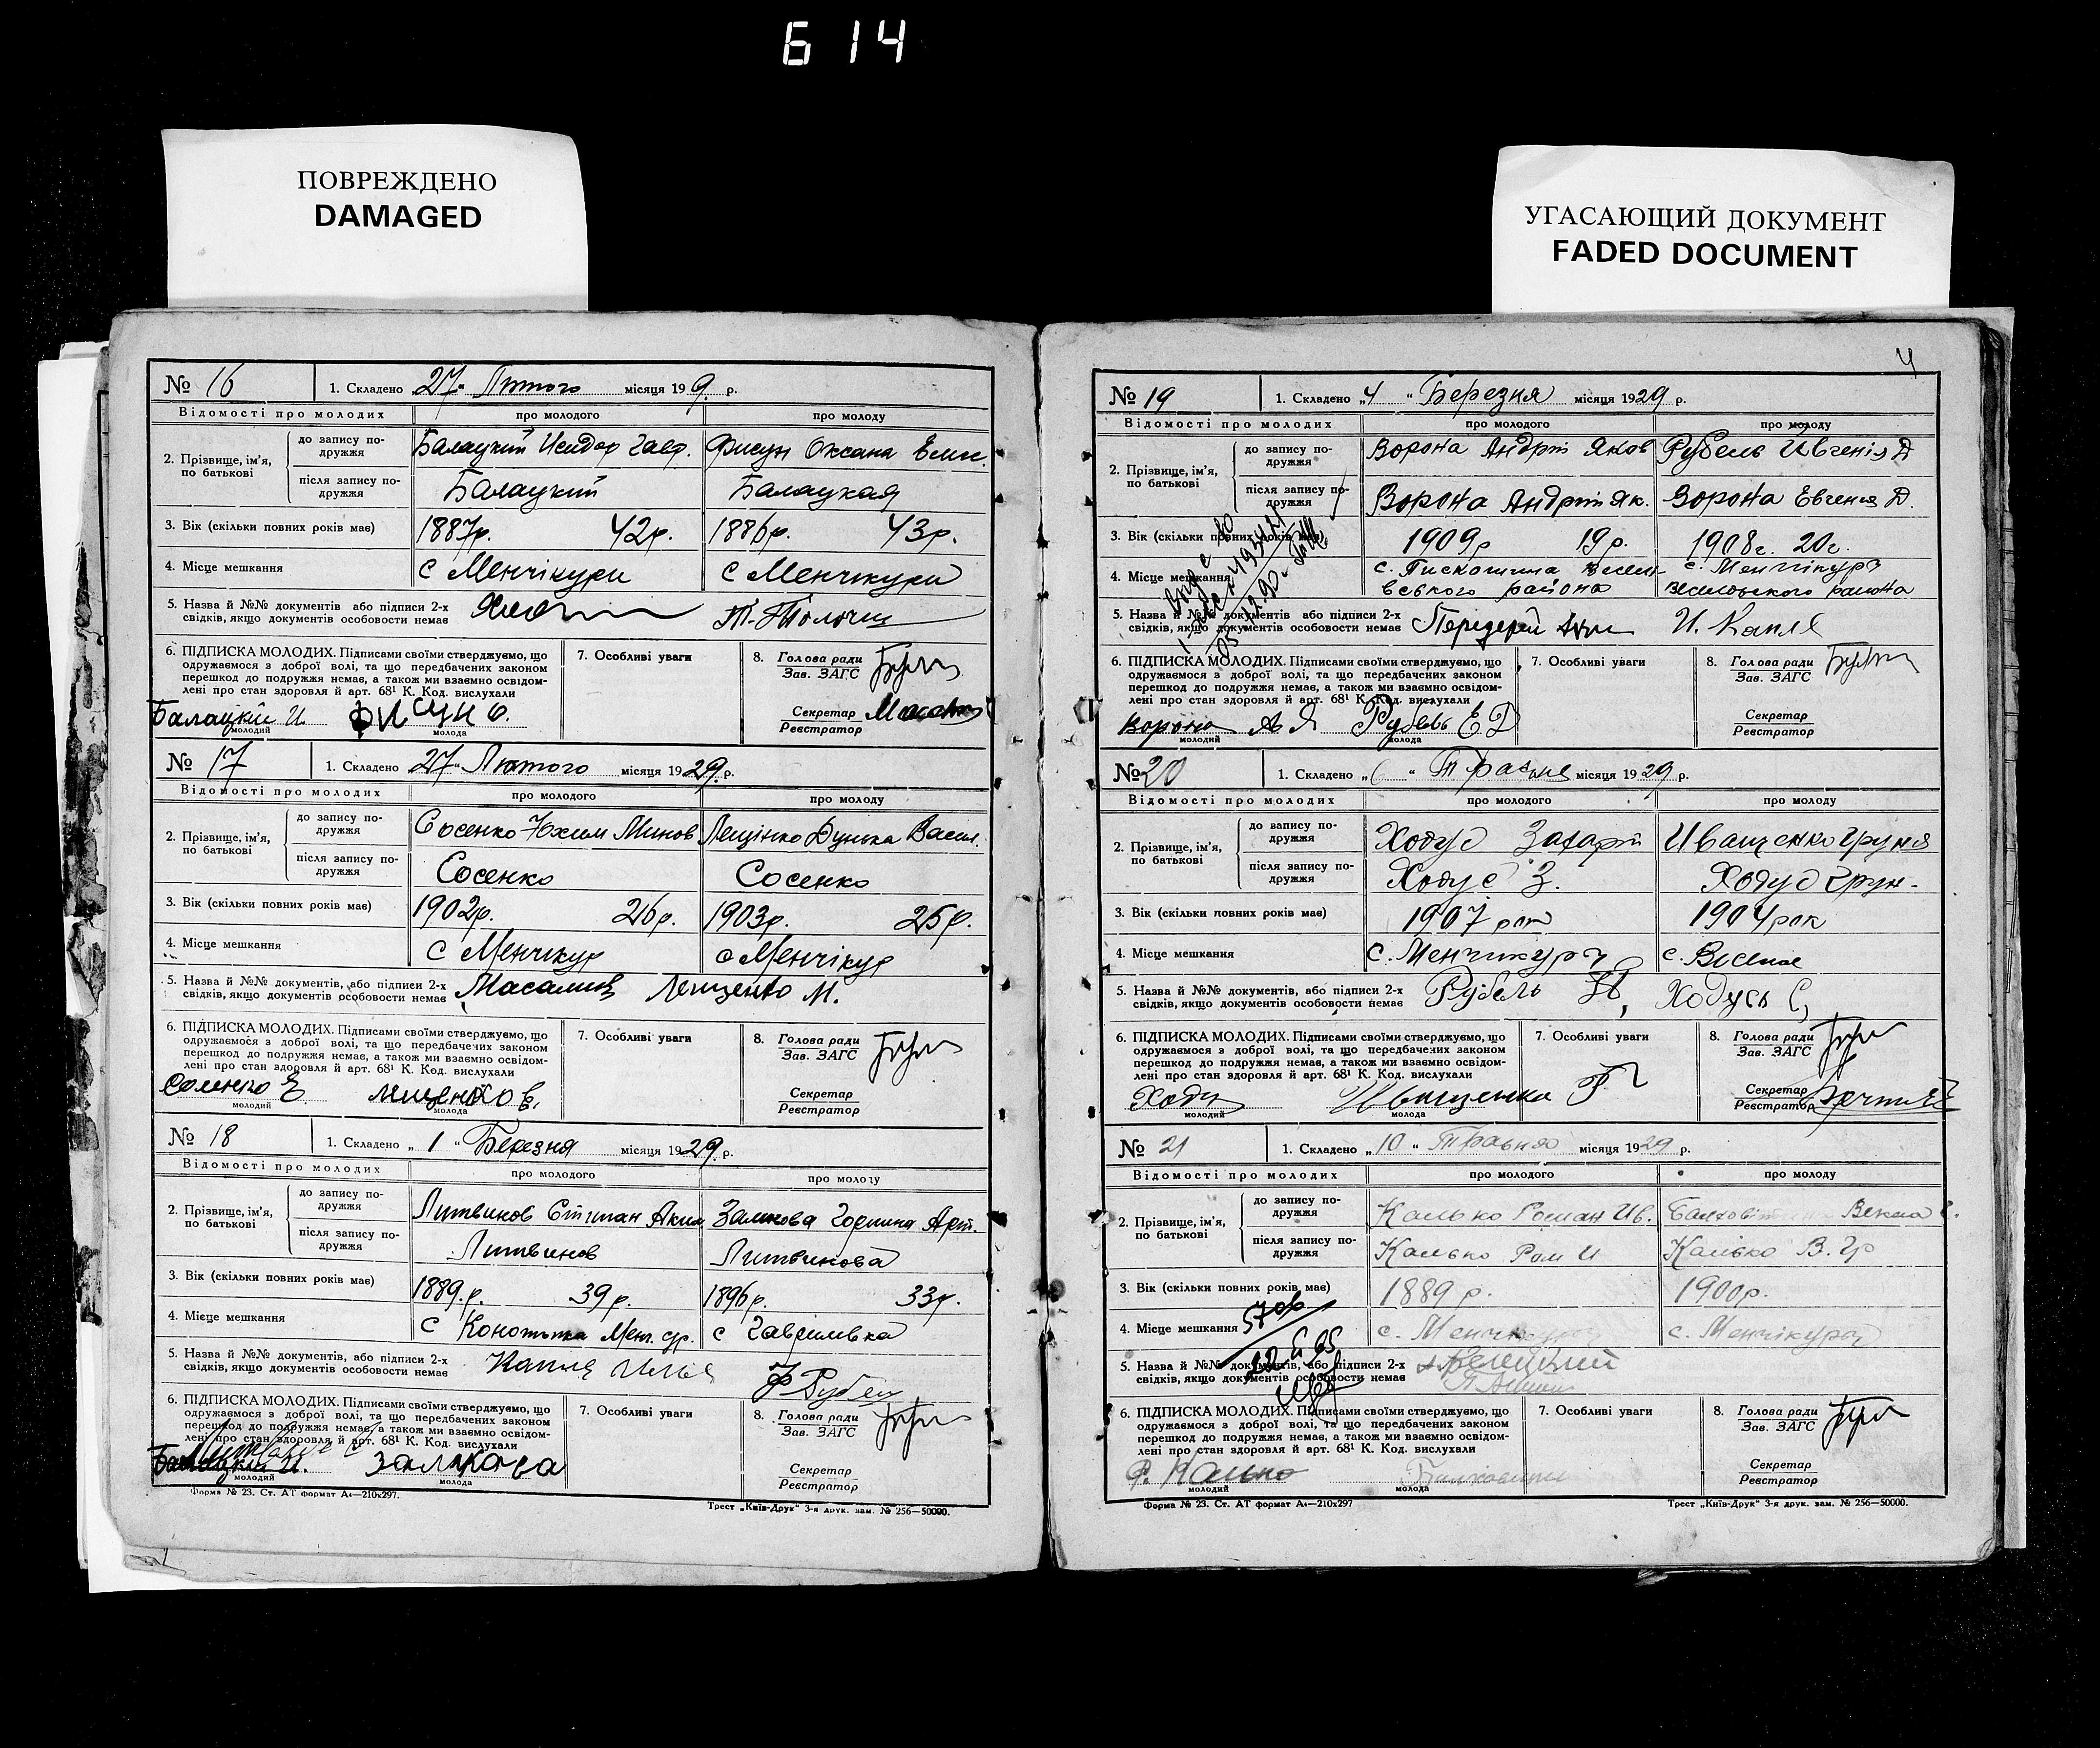 614
ПОВРЕЖДЕНО
DAMAGED
УГАСАЮЩИЙ ДОКУМЕНТ
FADED DOCUMENT
№ 16 1. Складено 27 " Лютого місяця 19 9. р.
Відомості про молодих про молодого про молоду
2. Прізвище, ім'я, по батькові
до запису подружжя Балацкий Исидор Гавр. Фисун Оксана
після запису подружжя Балацкий Балацкая
3. Вік (скільки повних років має) 1887р. 42р. 1886р. 43р.
4. Місце мешкання с Менчікури с Менчікури
5. Назва й №№ документів або підписи 2-х
свідків, якщо документів особовости немає
6. ПІДПИСКА МОЛОДИХ. Підписами своїми стверджуємо, що
одружаємося з доброї волі, та що передбачених законом
перешкод до подружжя немає, а також ми взаємно освідом-
лені про стан здоровля й арт. 68¹ К. Код. вислухали
Балацкий И. Фисунь.
молодий молода
7. Особливі уваги
8. Голова ради
Зав. ЗАГС
Секретар
Реєстратор
№ 17 1. Складено 27 " Лютого місяця 1929. р.
Відомості про молодих про молодого про молоду
2. Прізвище, ім'я, по батькові
до запису подружжя Сосенко Юхим Минов Лещінко Дунька Васил.
після запису подружжя Сосенко Сосенко
3. Вік (скільки повних років має) 1902р. 26р. 1903р. 25р.
4. Місце мешкання с Менчікур с Менчікур
5. Назва й №№ документів, або підписи 2-х
свідків, якщо документів особовости немає Лещенко М.
6. ПІДПИСКА МОЛОДИХ. Підписами своїми стверджуємо, що
одружаємося з доброї волі, та що передбачених законом
перешкод до подружжя немає, а також ми взаємно освідом-
лені про стан здоровля й арт. 68¹ К. Код. вислухали
молодий молода
7. Особливі уваги
8. Голова ради
Зав. ЗАГС
Секретар
Реєстратор
№ 18 1. Складено „ 1 " Березня місяця 1929. р.
Відомості про молодих про молодого про молоду
2. Прізвище, ім'я, по батькові
до запису подружжя Литвинов Степан Аким Арт.
після запису подружжя Литвинов Литвинова
3. Вік (скільки повних років має) 1889.р. 39р. 1896р. 33р.
4. Місце мешкання с с Гаврилівка
5. Назва й №№ документів, або підписи 2-х
свідків, якщо документів особовости немає Капля
6. ПІДПИСКА МОЛОДИХ. Підписами своїми стверджуємо, що
одружаємося з доброї волі, та що передбачених законом
перешкод до подружжя немає, а також ми взаємно освідом-
лені про стан здоровля й арт. 68¹ К. Код. вислухали
молодий молода
7. Особливі уваги
8. Голова ради
Зав. ЗАГС
Секретар
Реєстратор
Форма № 23. Ст. АТ формат А₄—210x297.
Трест „Київ-Друк" 3-я друк. зам. № 256—50000.
4
№ 19 1. Складено „4 " Березня місяця 1929 р.
Відомості про молодих про молодого про молоду
2. Прізвище, ім'я, по батькові
до запису подружжя Ворона Андрій Яков Рубель Ивгенія Д
після запису подружжя Ворона Андрій Як. Ворона Евгения Д.
3. Вік (скільки повних років має) 1909р 19р. 1908г. 20г.
4. Місце мешкання с. с. Менчікури
вського района Веселовського района
5. Назва й №№ документів або підписи 2-х
свідків, якщо документів особовости немає И. Капля
6. ПІДПИСКА МОЛОДИХ. Підписами своїми стверджуємо, що
одружаємося з доброї волі, та що передбачених законом
перешкод до подружжя немає, а також ми взаємно освідом-
лені про стан здоровля й арт. 68¹ К. Код. вислухали
Ворона А Я Рубель Е Д
молодий молода
7. Особливі уваги
8. Голова ради
Зав. ЗАГС
Секретар
Реєстратор
№ 20 1. Складено „ " Травня місяця 1929 р.
Відомості про молодих про молодого про молоду
2. Прізвище, ім'я, по батькові
до запису подружжя Ходус Захарій Иващенко Груня
після запису подружжя Ходус З. Ходус Грун.
3. Вік (скільки повних років має) 1907 рок 1904 рок
4. Місце мешкання с. Менчикури с. Веселе
5. Назва й №№ документів, або підписи 2-х
свідків, якщо документів особовости немає Рубель Ходусь С
6. ПІДПИСКА МОЛОДИХ. Підписами своїми стверджуємо, що
одружаємося з доброї волі, та що передбачених законом
перешкод до подружжя немає, а також ми взаємно освідом-
лені про стан здоровля й арт. 68¹ К. Код. вислухали
Иващенко Г
молодий молода
7. Особливі уваги
8. Голова ради
Зав. ЗАГС
Секретар
Реєстратор
№ 21 1. Складено „10 " Травня місяця 1929 р.
Відомості про молодих про молодого про молоду
2. Прізвище, ім'я, по батькові
до запису подружжя Калько Роман Ив.
після запису подружжя Калько Ром И Калько В. Гр
3. Вік (скільки повних років має) 1889 р. 1900р.
4. Місце мешкання с. Менчікури с. Менчікури
5. Назва й №№ документів, або підписи 2-х
свідків, якщо документів особовости немає
6. ПІДПИСКА МОЛОДИХ. Підписами своїми стверджуємо, що
одружаємося з доброї волі, та що передбачених законом
перешкод до подружжя немає, а також ми взаємно освідом-
лені про стан здоровля й арт. 68¹ К. Код. вислухали
Р. Калько
молодий молода
7. Особливі уваги
8. Голова ради
Зав. ЗАГС
Секретар
Реєстратор
Форма № 23. Ст. АТ формат А₄—210x297
Трест „Київ-Друк" 3-я друк. зам. № 256—50000.